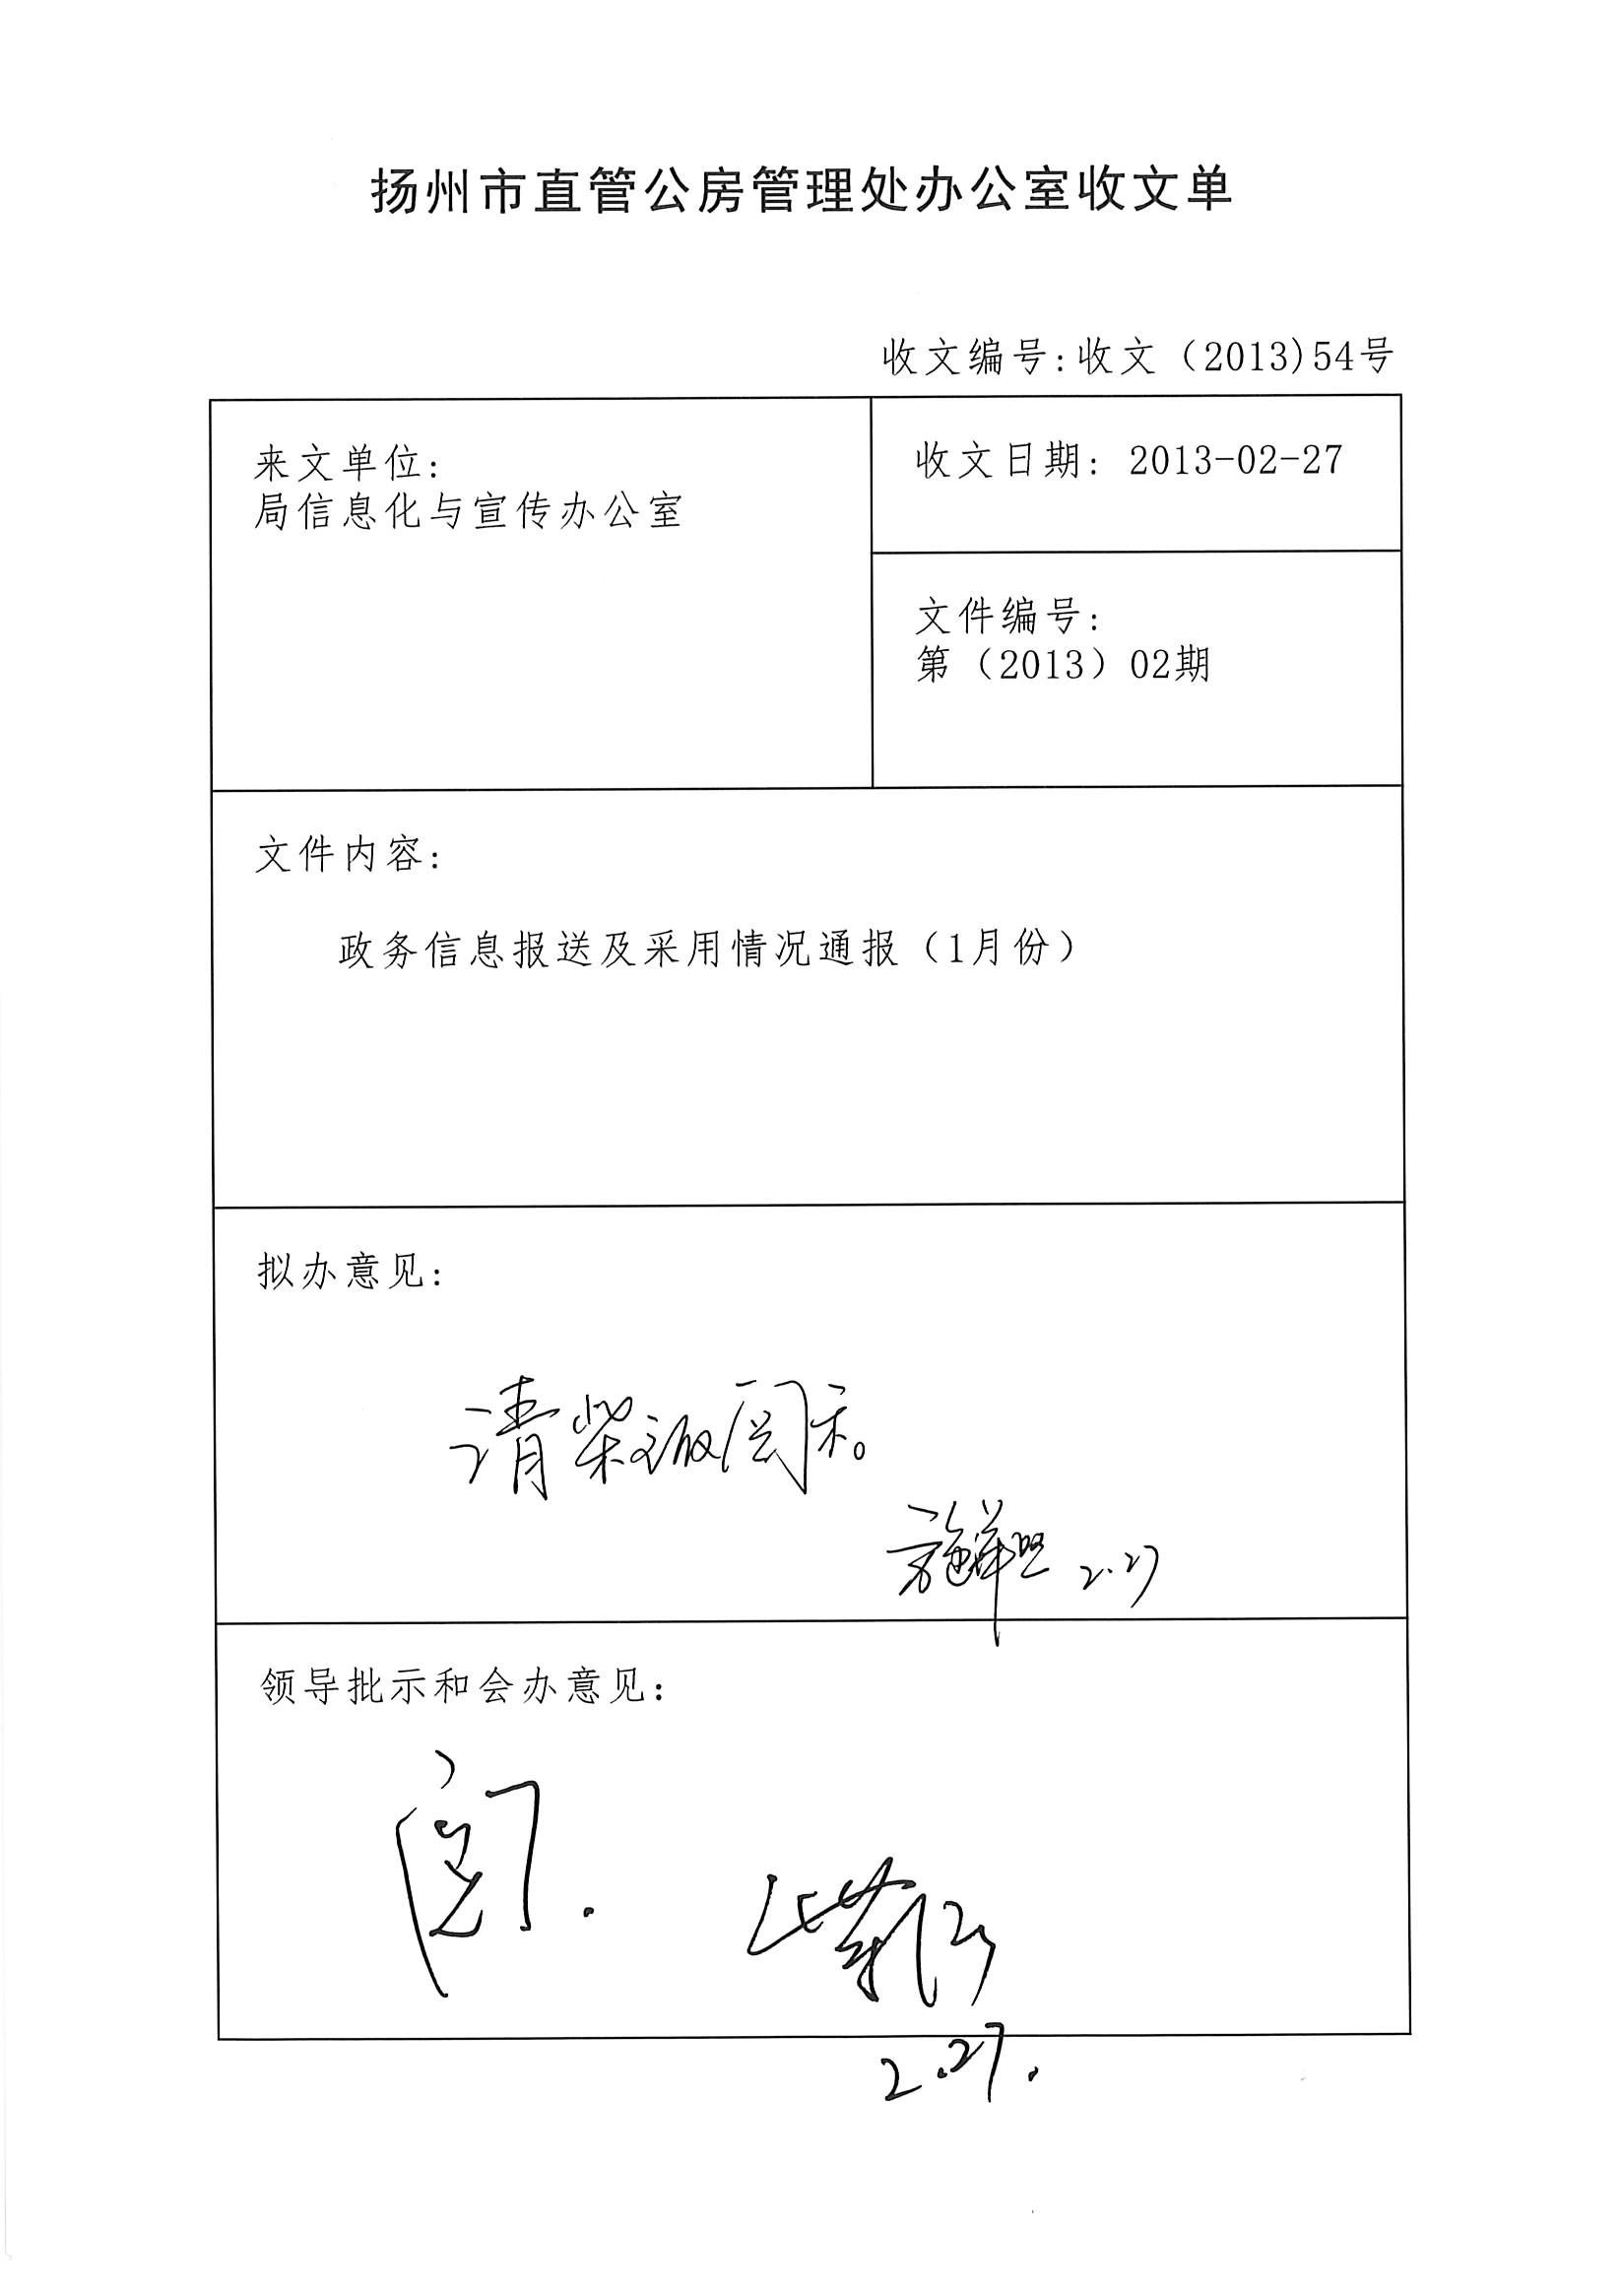 扬州市直管公房管理处办公室收文单
收文编号:收文（2013)54号
来文单位:
局信息化与宣传办公室
收文日期: 2013-02-27
文件编号:
第（2013）02期
文件内容:
政务信息报送及采用情况通报（1月份）
拟办意见:
请柴 阅示。
2.27
领导批示和会办意见:
阅.
柴
2.27.